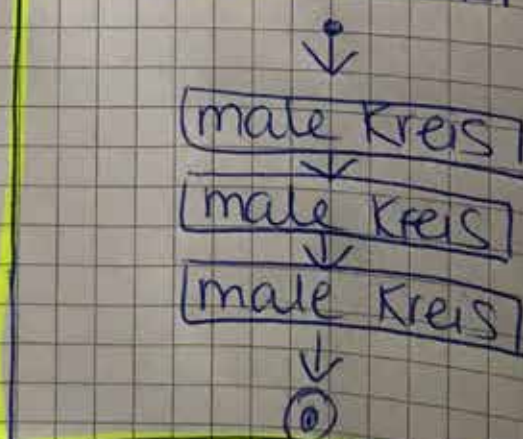 male Kreis
male Kreis
male Kreis